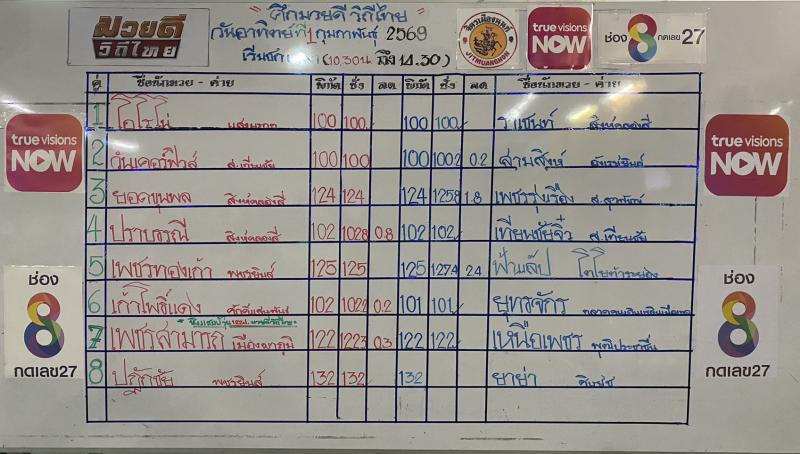 "ศึกมวยดี วิถีไทย"
มวยดี วิถีไทย
วันอาทิตย์ที่ 1 กุมภาพันธุ์ 2569
(10.30น ถึง 14.30)
จิตรเมืองนนท์ JITMUANGNON
true visions NOW
ช่อง 8 กดเลข 27
คู่ ชื่อนักมวย - ค่าย พิกัด ชั่ง ลด พิกัด ชั่ง ลด ชื่อนักมวย - ค่าย
1 โอโรโน่ 100 100 100 100 ราเชนท์ สิงห์คลองสี่
2 วันเดอร์ฟิวส์ ส.เทียนชัย 100 100 100 1002 0.2 สามสิงห์
3 ยอดขุนพล สิงห์คลองสี่ 124 124 124 1258 1.8 เพชรรุ่งเรือง
4 ปราบธรณี สิงห์คลองสี่ 102 1028 0.8 102 102 เทียนชัยจิ๋ว ส.เทียนชัย
5 เพชรทองเก้า พชรยิมส์ 125 125 125 1274 2.4 ฟ้าแล๊ป
6 เก้าโพธิ์แดง 102 1022 0.2 101 101 ยุทธจักร
7 เพชรสามารถ เมืองลาภูมิ 122 1223 0.3 122 122 เหนือเพชร
8 ปฏักชัย พชรยิมส์ 132 132 132 ยาย่า
true visions NOW
true visions NOW
ช่อง 8 กดเลข27
ช่อง 8 กดเลข27